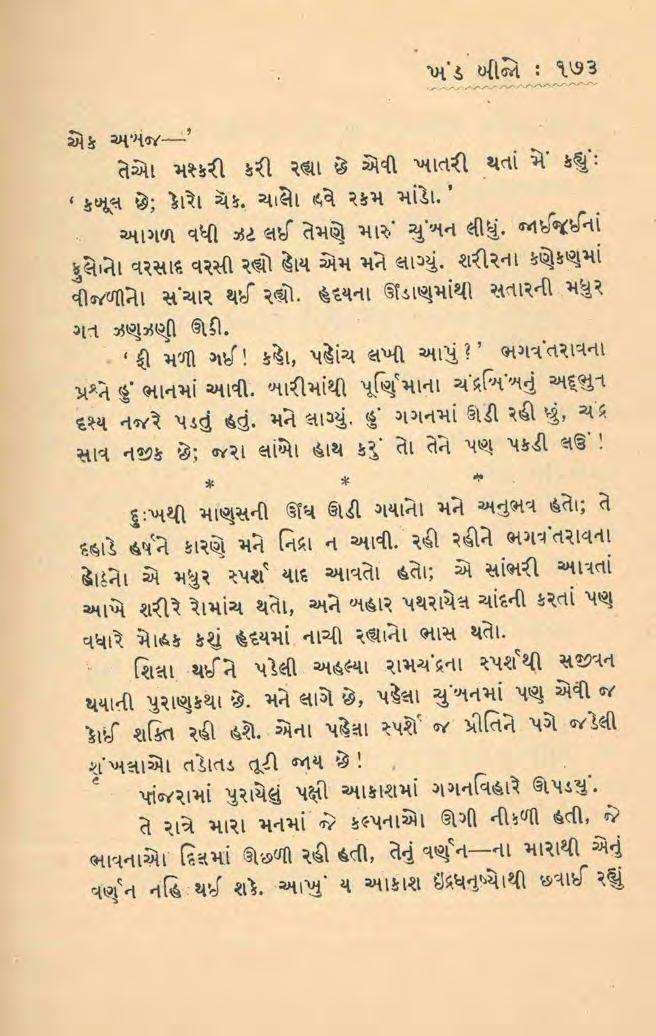 ખંડ બીજો : ૧૭૩
એક અબજ—’
તેઓ મશ્કરી કરી રહ્યા છે એવી ખાતરી થતાં મેં કહ્યુંઃ
‘ કબૂલ છે; કોરો ચૅક. ચાલો હવે રકમ માંડો. ’
આગળ વધી ઝટ લઈ તેમણે મારું ચુંબન લીધું. જાઈજૂઈનાં
ફુલોનો વરસાદ વરસી રહ્યો હોય એમ મને લાગ્યું. શરીરના કણેકણમાં
વીજળીનો સંચાર થઈ રહ્યો. હૃદયના ઊંડાણમાંથી સતારની મધુર
ગત ઝણઝણી ઊઠી.
‘ ફી મળી ગઈ! કહો, પહોંચ લખી આપું ? ’ ભગવંતરાવના
પ્રશ્ને હું ભાનમાં આવી. બારીમાંથી પૂર્ણિમાના ચંદ્રબિંબનું અદ્દભુત
દૃશ્ય નજરે પડતું હતું. મને લાગ્યું. હું ગગનમાં ઊડી રહી છું, ચંદ્ર
સાવ નજીક છે; જરા લાંબો હાથ કરું તો તેને પણ પકડી લઉં !
* * *
દુઃખથી માણસની ઊંઘ ઊડી ગયાનો મને અનુભવ હતો; તે
દહાડે હર્ષને કારણે મને નિદ્રા ન આવી. રહી રહીને ભગવંતરાવના
હોઠનો એ મધુર સ્પર્શ યાદ આવતો હતો; એ સાંભરી આવતાં
આખે શરીરે રોમાંચ થતો, અને બહાર પથરાયેલ ચાંદની કરતાં પણ
વધારે મોહક કશું હૃદયમાં નાચી રહ્યાનો ભાસ થતો.
શિલા થઈને પડેલી અહલ્યા રામચંદ્રના સ્પર્શથી સજીવન
થયાની પુરાણકથા છે. મને લાગે છે, પહેલા ચુંબનમાં પણ એવી જ
કોઈ શક્તિ રહી હશે. એના પહેલા સ્પર્શે જ પ્રીતિને પગે જડેલી
શૃંખલાઓ તડોતડ તૂટી જાય છે !
પાંજરામાં પુરાયેલું પક્ષી આકાશમાં ગગનવિહારે ઊપડ્યું.
તે રાત્રે મારા મનમાં જે કલ્પનાઓ ઊગી નીકળી હતી, જે
ભાવનાઓ દિલમાં ઊછળી રહી હતી, તેનું વર્ણન—ના મારાથી એનું
વર્ણન નહિ થઈ શકે. આખું ય આકાશ ઇંદ્રધનુષ્યોથી છવાઈ રહ્યું